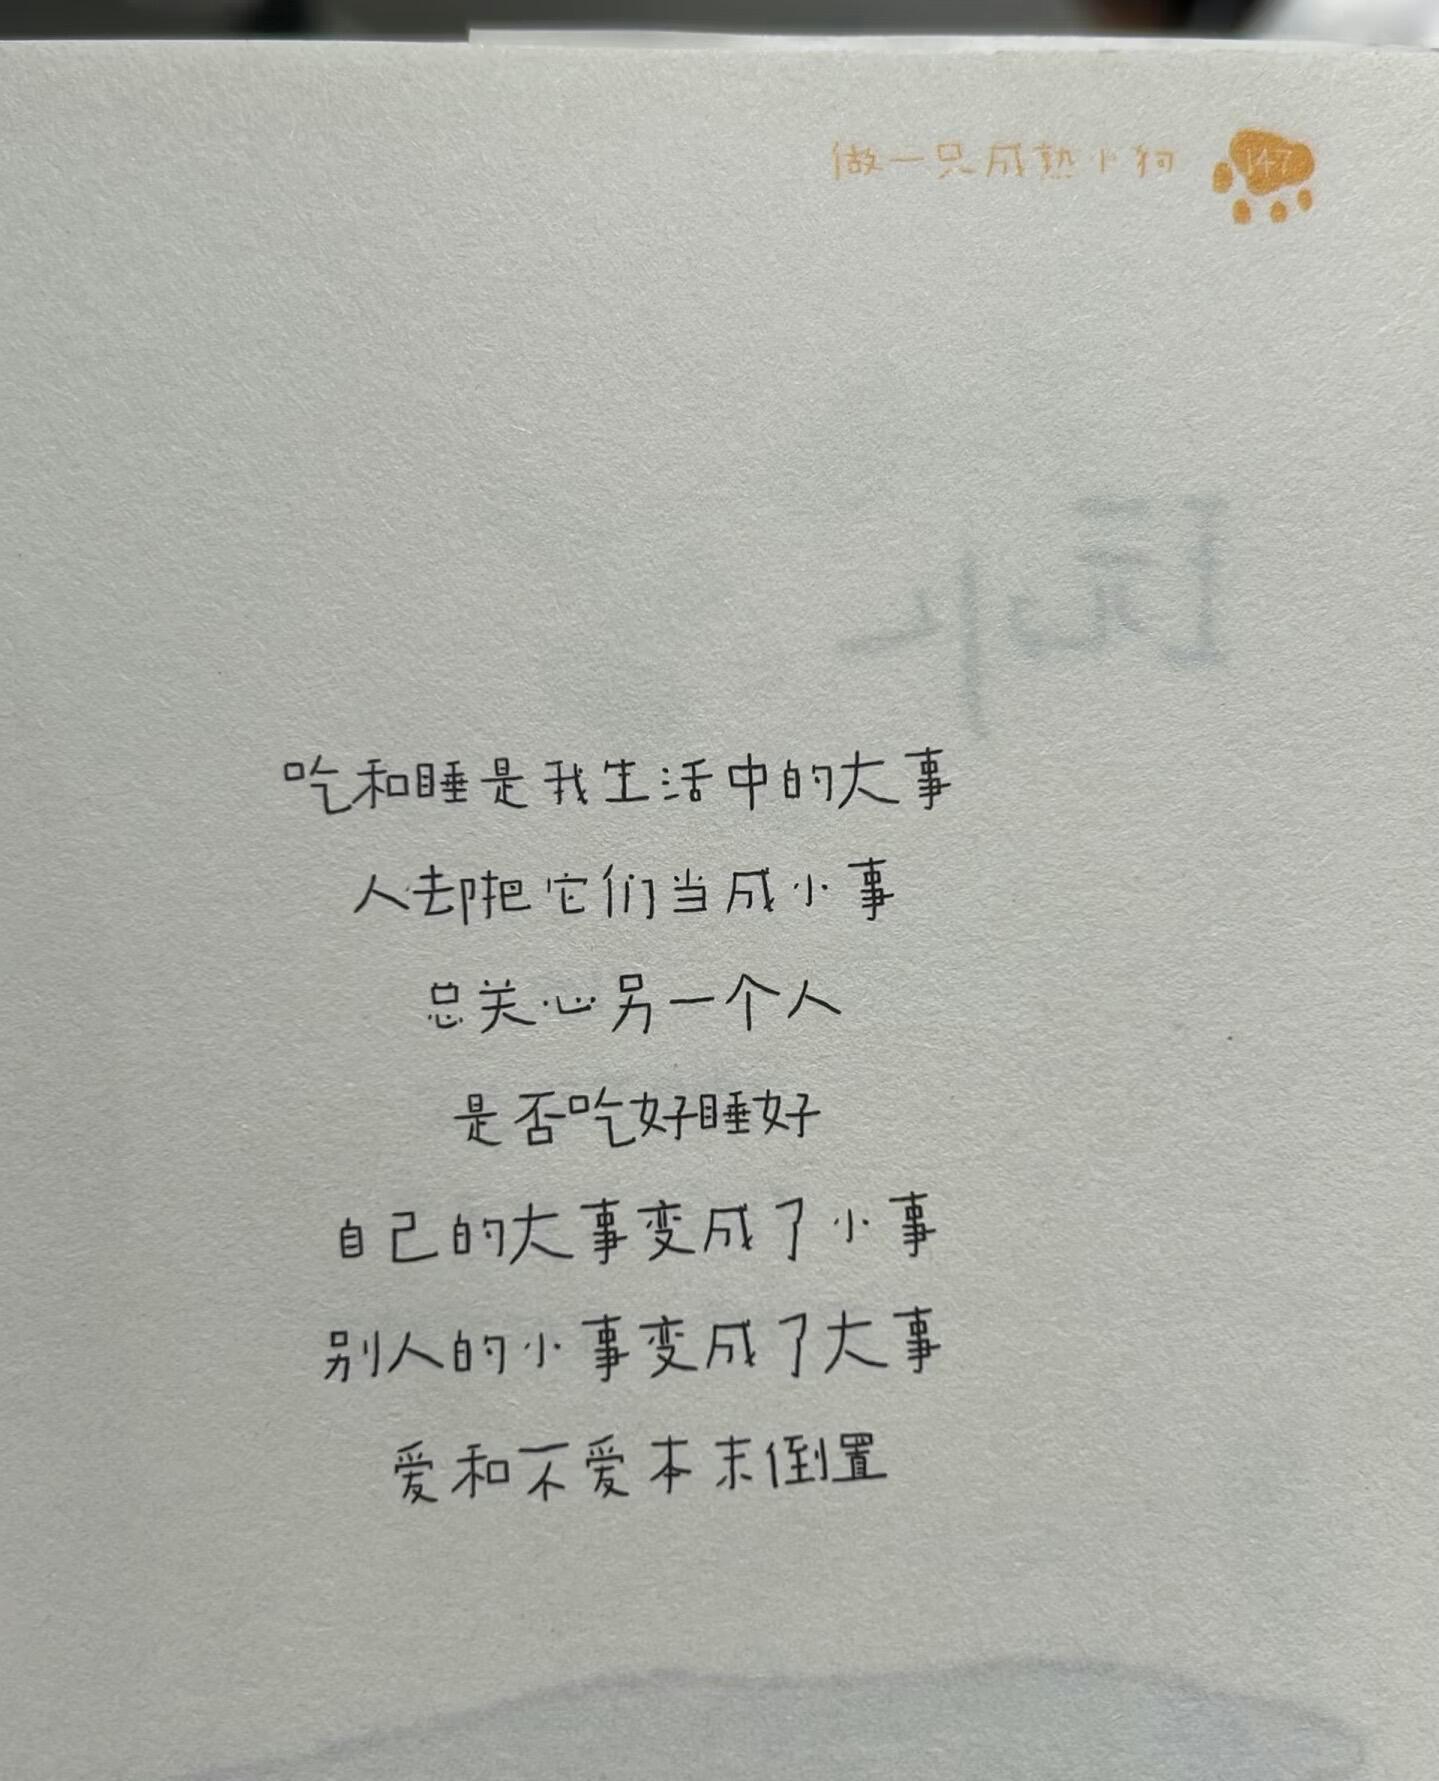 做一只成熟小狗 147
吃和睡是我生活中的大事
人却把它们当成小事
总关心另一个人
是否吃好睡好
自己的大事变成了小事
别人的小事变成了大事
爱和不爱本末倒置
玩水